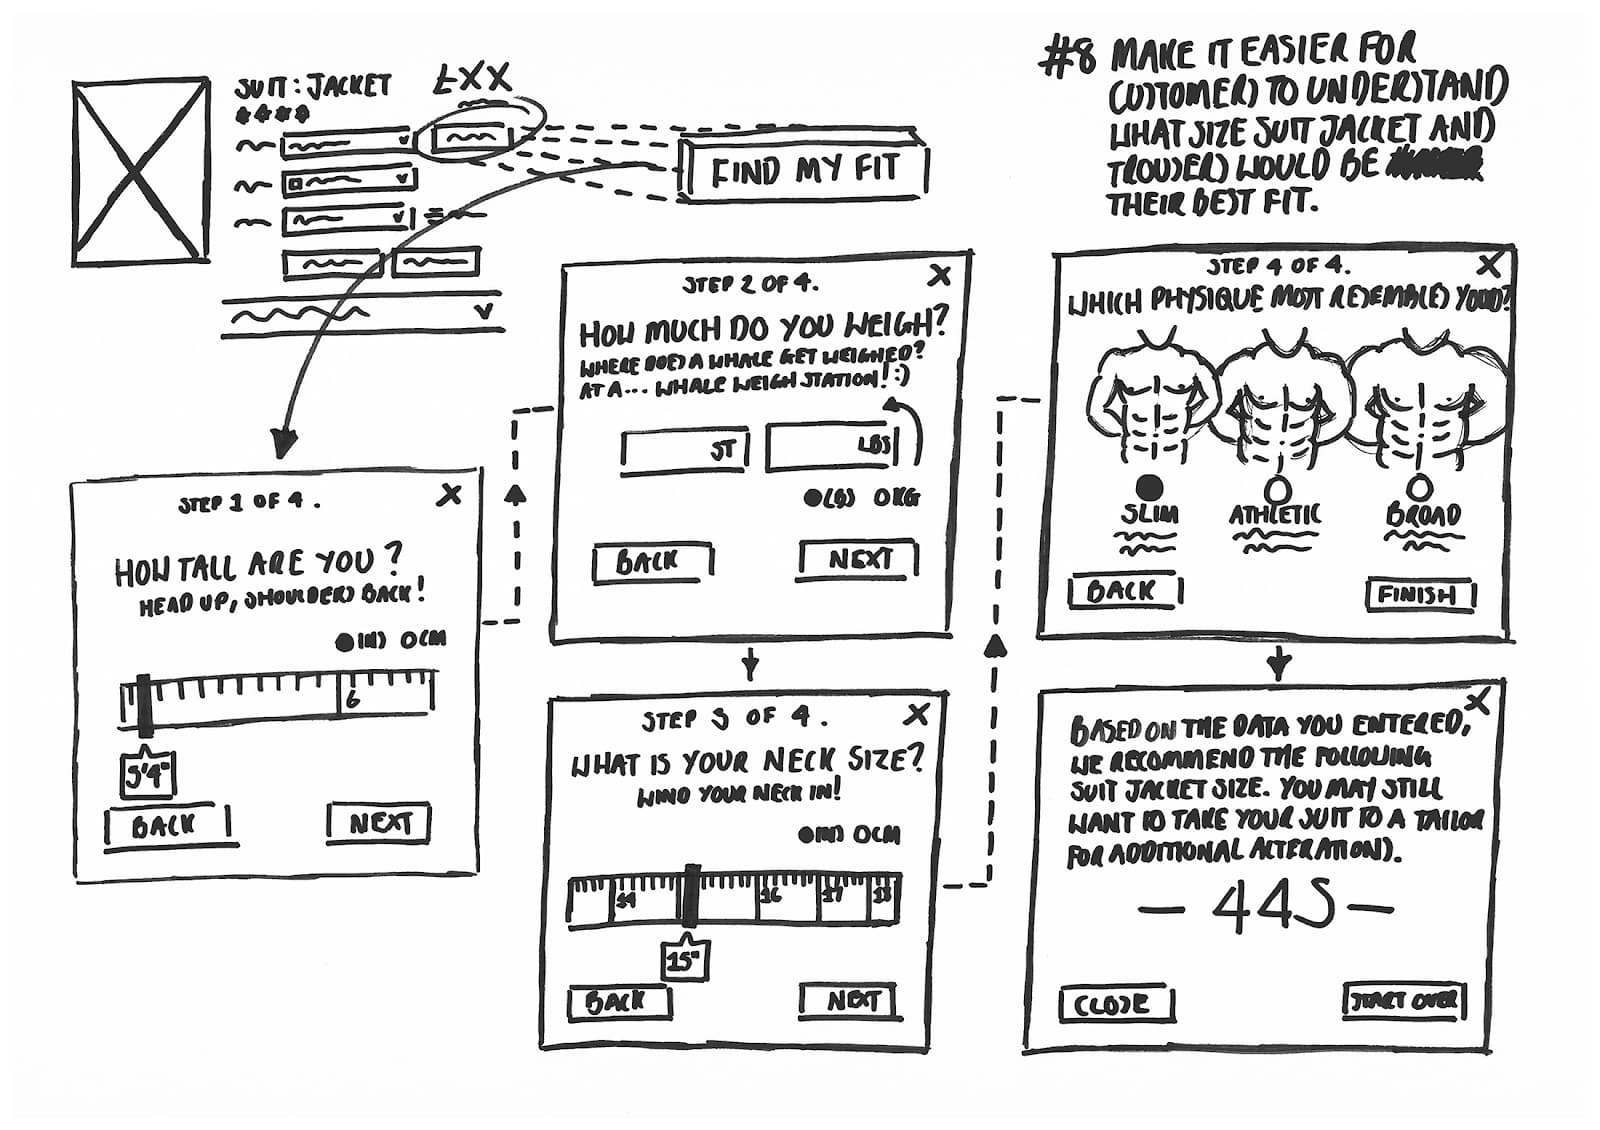 SUIT: JACKET
£XX
FIND MY FIT
#8 MAKE IT EASIER FOR
CUSTOMERS TO UNDERSTAND
WHAT SIZE SUIT JACKET AND
TROUSERS WOULD BE
THEIR BEST FIT.
STEP 1 OF 4.
X
HOW TALL ARE YOU?
HEAD UP, SHOULDERS BACK!
INS CM
6
5'4"
BACK
NEXT
STEP 2 OF 4.
X
HOW MUCH DO YOU WEIGH?
WHERE DOES A WHALE GET WEIGHED?
AT A... WHALE WEIGH STATION! :)
ST
LBS
LBS KG
BACK
NEXT
STEP 3 OF 4.
X
WHAT IS YOUR NECK SIZE?
WIND YOUR NECK IN!
IN CM
14 16 17 18
15"
BACK
NEXT
STEP 4 OF 4.
X
WHICH PHYSIQUE MOST RESEMBLES YOU?
SLIM
ATHLETIC
BROAD
BACK
FINISH
X
BASED ON THE DATA YOU ENTERED,
WE RECOMMEND THE FOLLOWING
SUIT JACKET SIZE. YOU MAY STILL
WANT TO TAKE YOUR SUIT TO A TAILOR
FOR ADDITIONAL ALTERATIONS.
- 44S -
CLOSE
START OVER